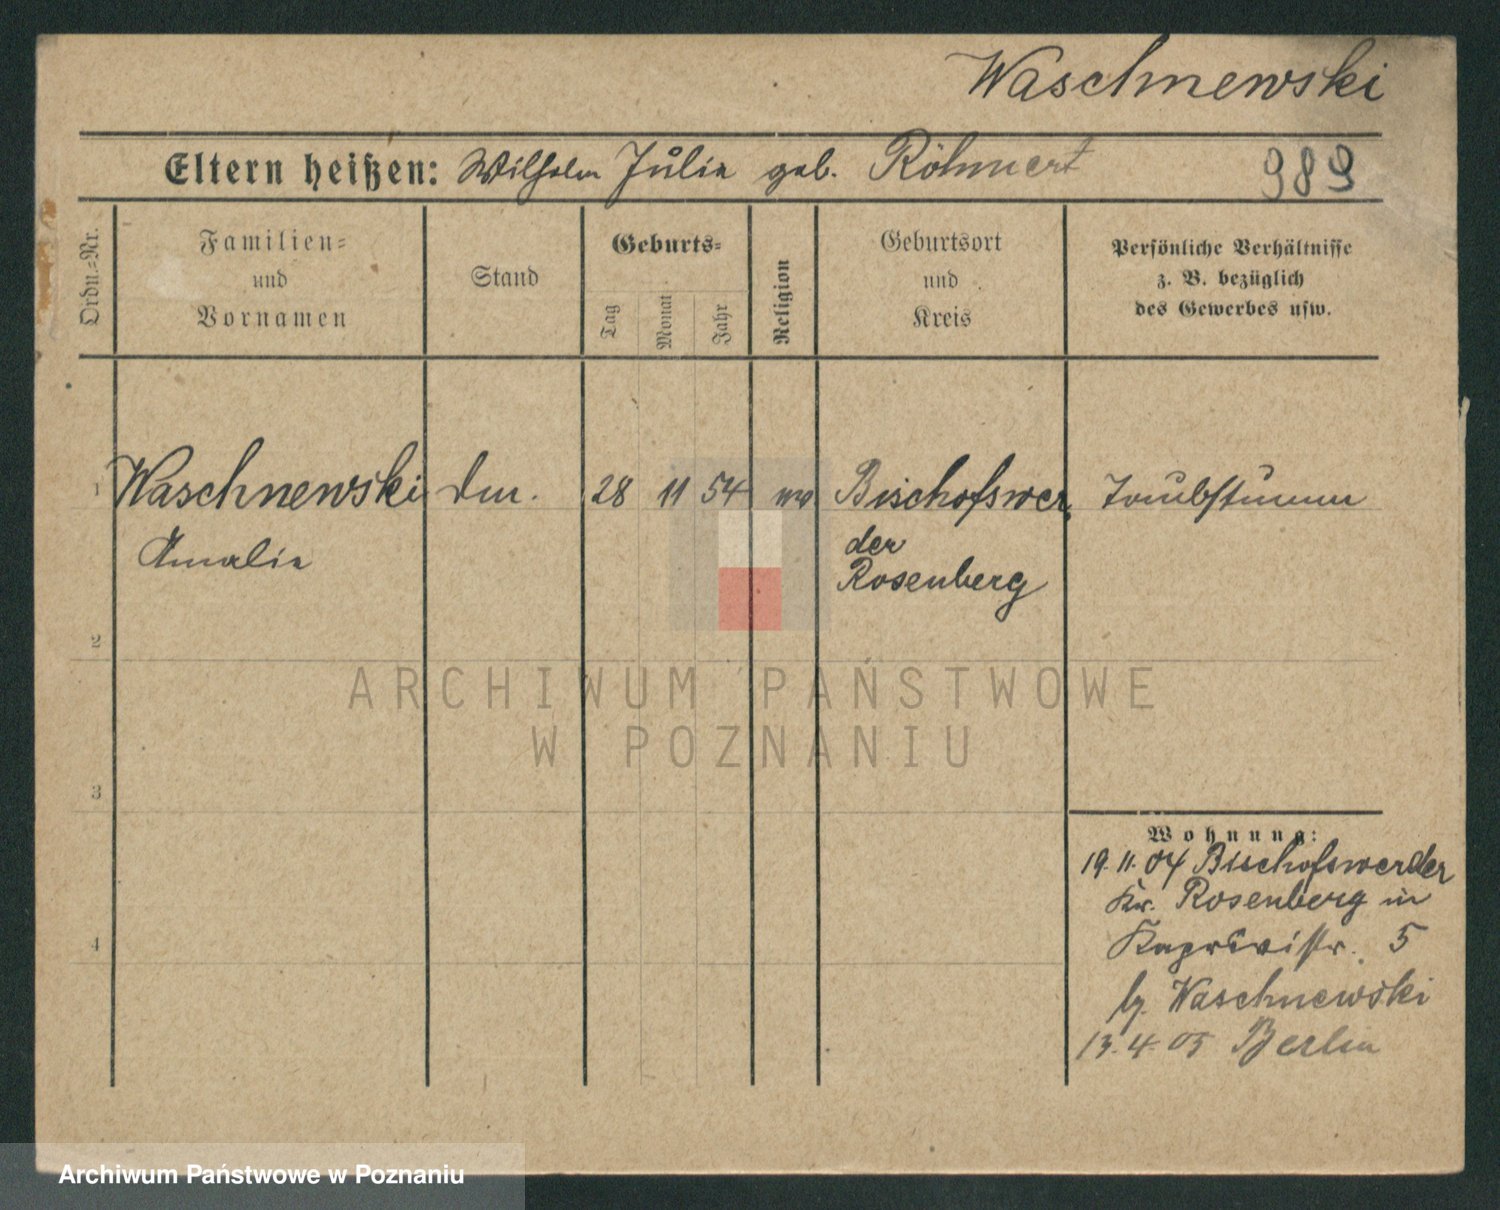 Waschnewski
Eltern heißen: Wilhelm Julie geb. Röhnert 989
Ordn.=Nr.
Familien=
und
Vornamen
Stand
Geburts=
Tag
Monat
Jahr
Religion
Geburtsort
und
Kreis
Persönliche Verhältnisse
z. B. bezüglich
des Gewerbes usw.
1 Waschnewski 28 11 54 ev Bischofswer Taubstumm
Amalie
der
Rosenberg
2
3
4
Wohnung:
19.11.04 Bischofswerder
Kr. Rosenberg in
5
b. Waschnewski
13.4.05 Berlin
ARCHIWUM PAŃSTWOWE
W POZNANIU
Archiwum Państwowe w Poznaniu